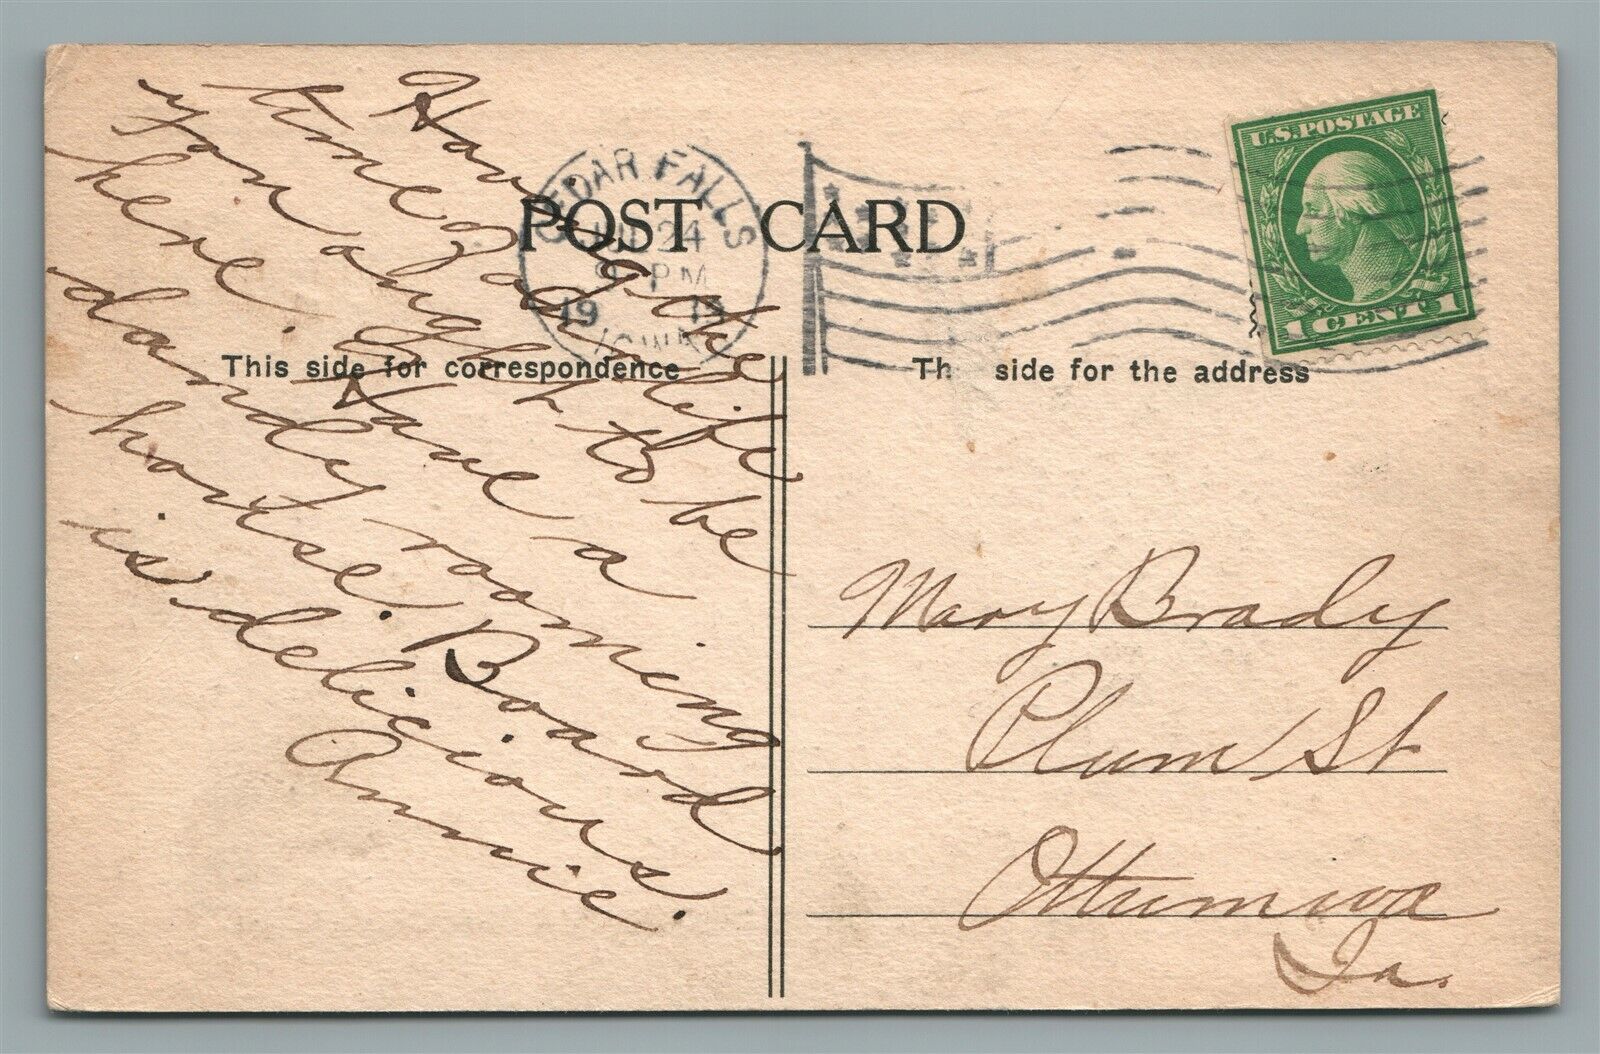 Having the
time of an life
You ought to be
here. Have a
dandy rooming
house. Board
is delicious.
Annie
POST CARD
CEDAR FALLS
24
PM
19
IOWA
This side for correspondence
Th side for the address
U.S. POSTAGE
1 CENT 1
Mary Brady
Plum St
Ottumwa
Ia.